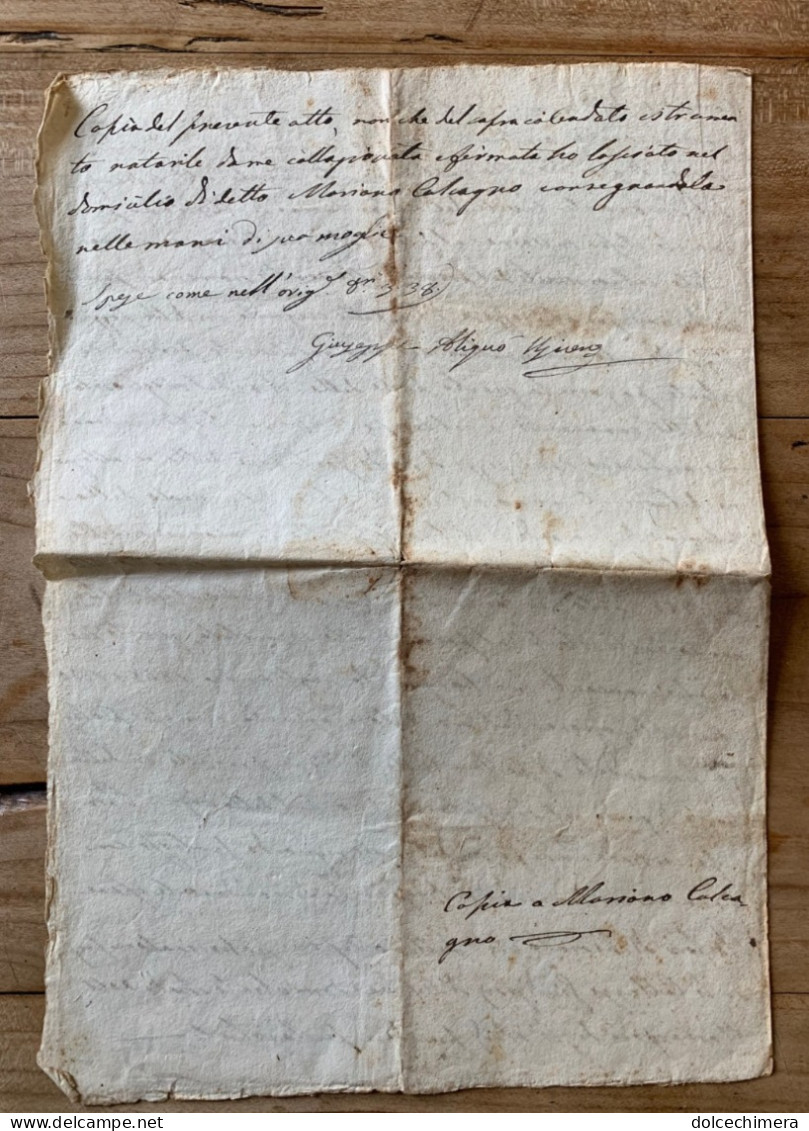 Copia del presente atto, non che del sopracalendato istrumen
to notarile da me collazionata e firmata ho lasciato nel
domicilio di detto Mariano Calcagno consegnandola
nelle mani di sua moglie
Spese come nell'orig.
Giuseppe Aliquò
Copia a Mariano Calca
gno
dolcechimera